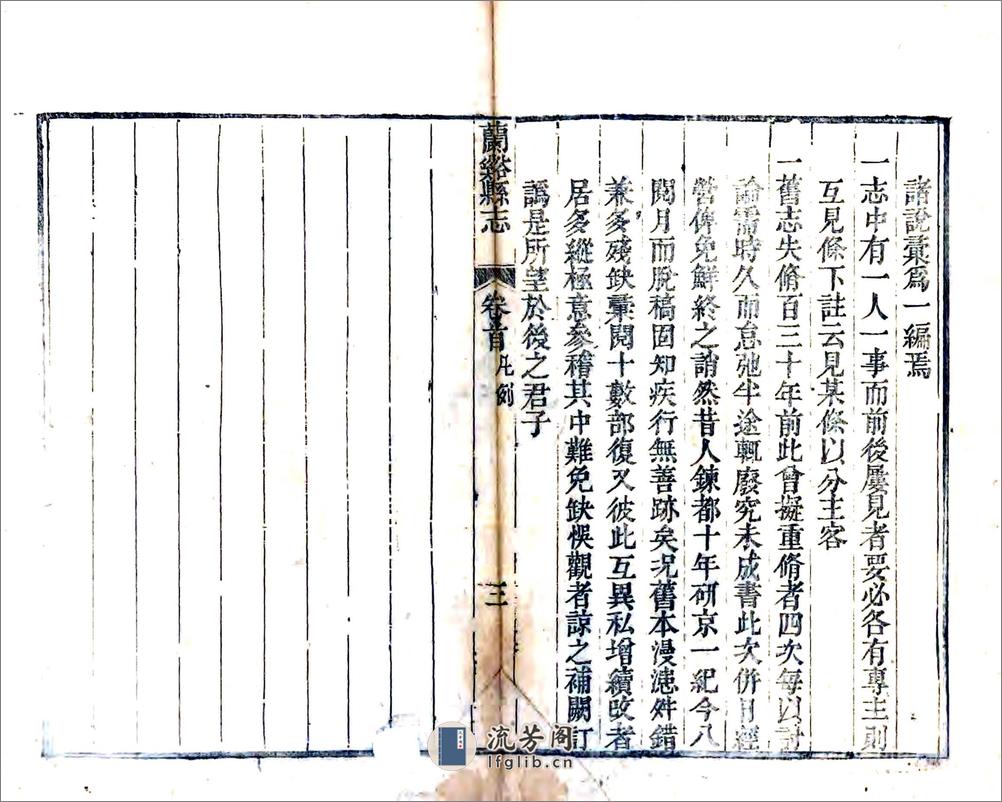 諸說彚爲一編焉
一志中有一人一事而前後屢見者要必各有專主則
互見條下註云見某條以分主客
一舊志失脩百三十年前此曾擬重脩者四次每以討
論需時久而怠弛半途輒廢究未成書此次併日經
營俾免鮮終之誚然昔人鍊都十年研京一紀今八
閱月而脫稿固知疾行無善跡矣况舊本漫漶舛錯
兼多殘缺彚閱十數部復又彼此互異私增續改者
居多縱極意參稽其中難免缺悞觀者諒之補闕訂
譌是所望於後之君子
蘭谿縣志
卷首
凡例
三
流芳阁
lfglib.cn